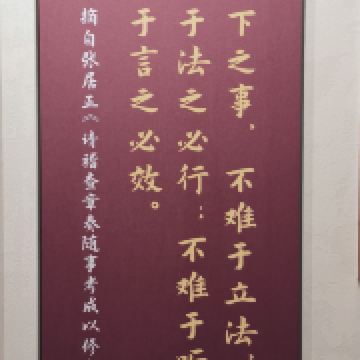 下之事，不难于立法，
于法之必行；不难于听
于言之必效。
摘自张居正《请稽查章奏随事考成以修